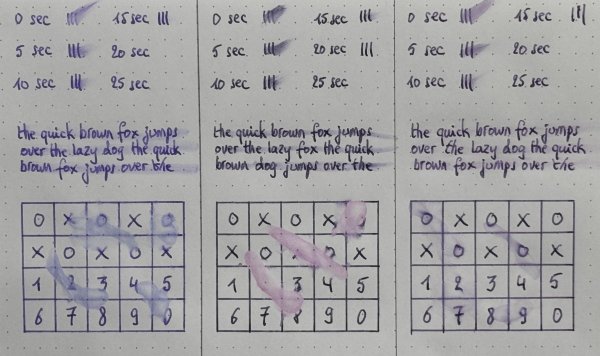 0 sec ||| 15 sec |||
5 sec ||| 20 sec
10 sec ||| 25 sec
the quick brown fox jumps
over the lazy dog the quick
brown fox jumps over the
O X O X O
X O X O X
1 2 3 4 5
6 7 8 9 0
0 sec ||| 15 sec |||
5 sec ||| 20 sec |||
10 sec ||| 25 sec
the quick brown fox jumps
over the lazy fox the quick
brown dog jumps over the
O X O X O
X O X O X
1 3 4 5
6 7 8 9 0
0 sec ||| 15 sec |||
5 sec ||| 20 sec
10 sec ||| 25 sec
the quick brown fox jumps
over the lazy dog the quick
brown fox jumps over the
O X O X O
X O X O X
1 2 3 4 5
6 7 8 9 0